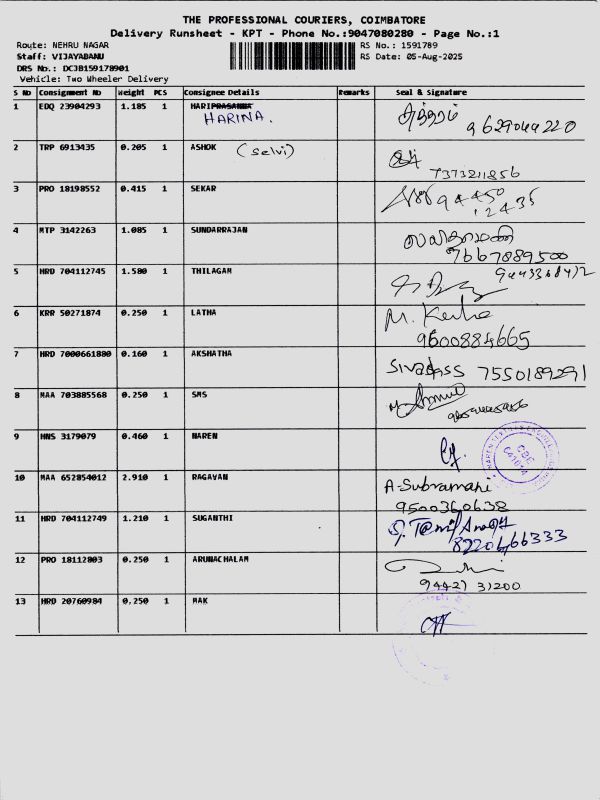 THE PROFESSIONAL COURIERS, COIMBATORE
Delivery Runsheet - KPT - Phone No.:9047080280 - Page No.:1
Route: NEHRU NAGAR RS No.: 1591789
Staff: VIJAYABANU RS Date: 05-Aug-2025
DRS No.: DCJB159178901
Vehicle: Two Wheeler Delivery
S No Consignment No Weight PCS Consignee Details Remarks Seal & Signature
1 EDQ 23904293 1.185 1 HARIPRASANNA
HARINA. 9629049220
2 TRP 6913435 0.205 1 ASHOK (Selvi)
7373211856
3 PRO 18198552 0.415 1 SEKAR 94450
12435
4 MTP 3142263 1.085 1 SUNDARRAJAN
7667889500
5 HRD 704112745 1.580 1 THILAGAM
6 KRR 50271874 0.250 1 LATHA M.
9600884665
7 HRD 7000661880 0.160 1 AKSHATHA Sivadass 7550189291
8 MAA 703885568 0.250 1 SMS
9 HNS 3179079 0.460 1 NAREN
CBE
641014
10 MAA 652854012 2.910 1 RAGAVAN A-Subramani
9500360638
11 HRD 704112749 1.210 1 SUGANTHI
8220666333
12 PRO 18112803 0.250 1 ARUNACHALAM
94427 31200
13 HRD 20760984 0.250 1 MAK